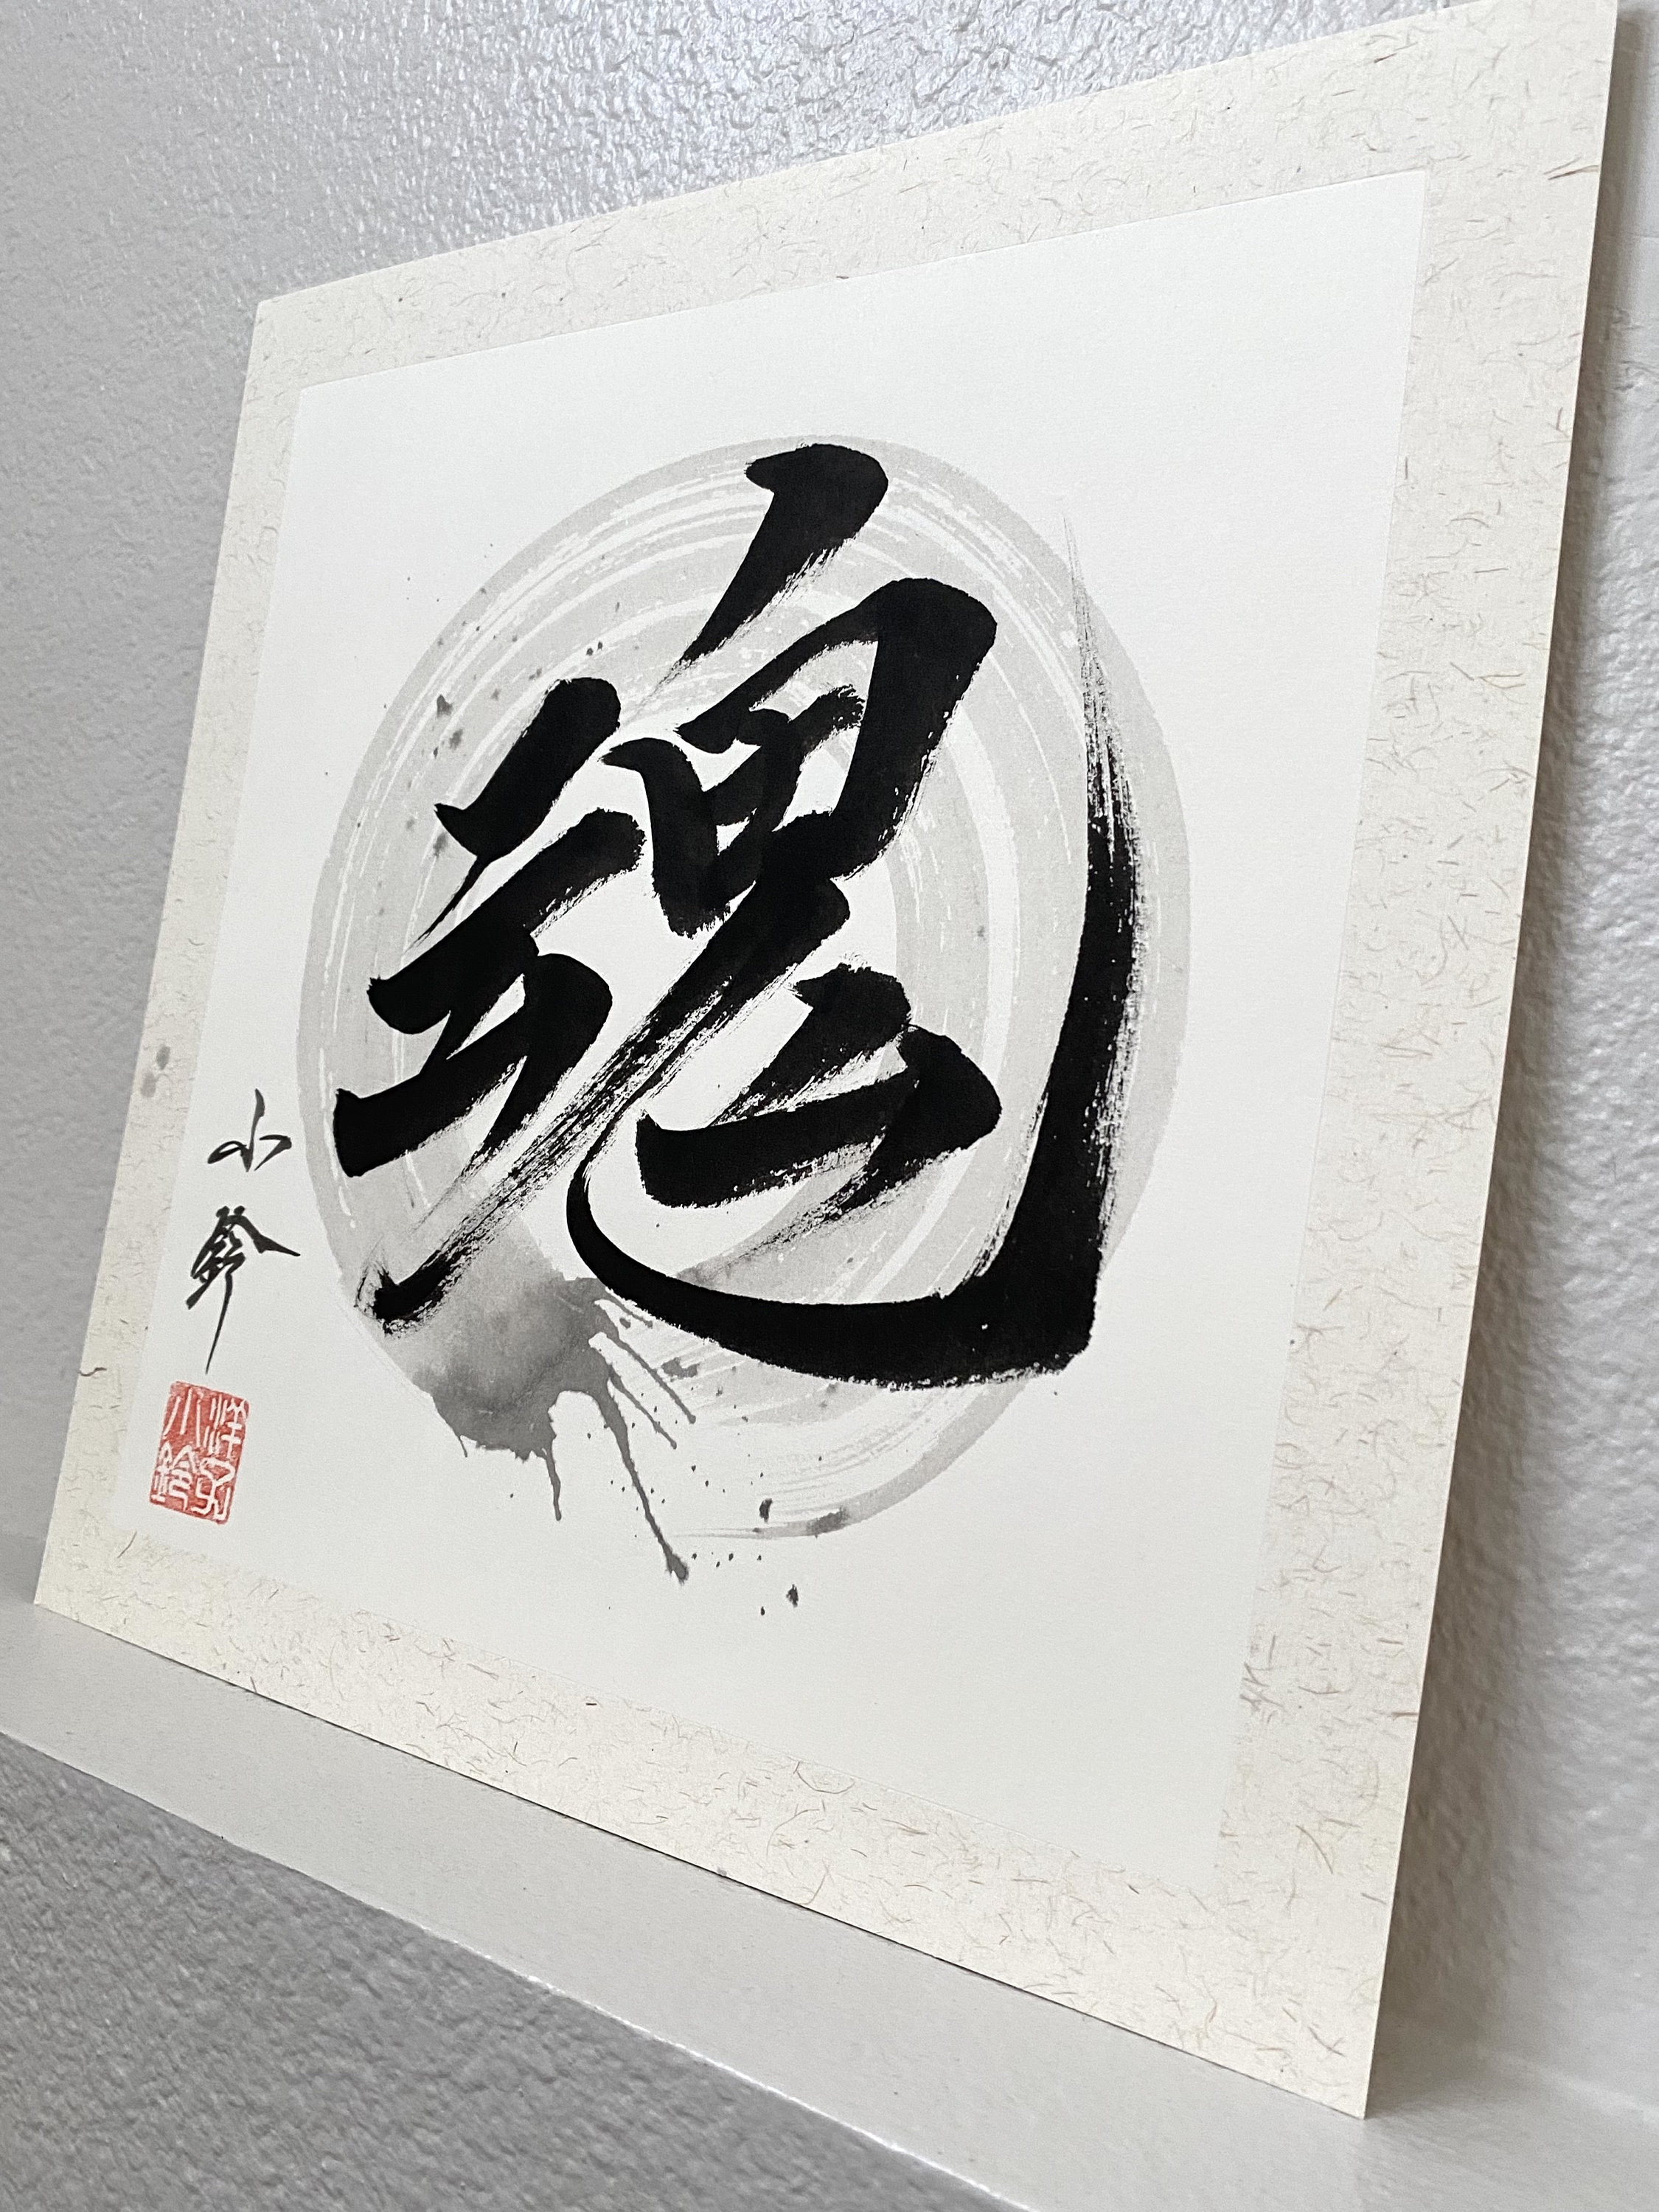 魂
小鈴
小鈴